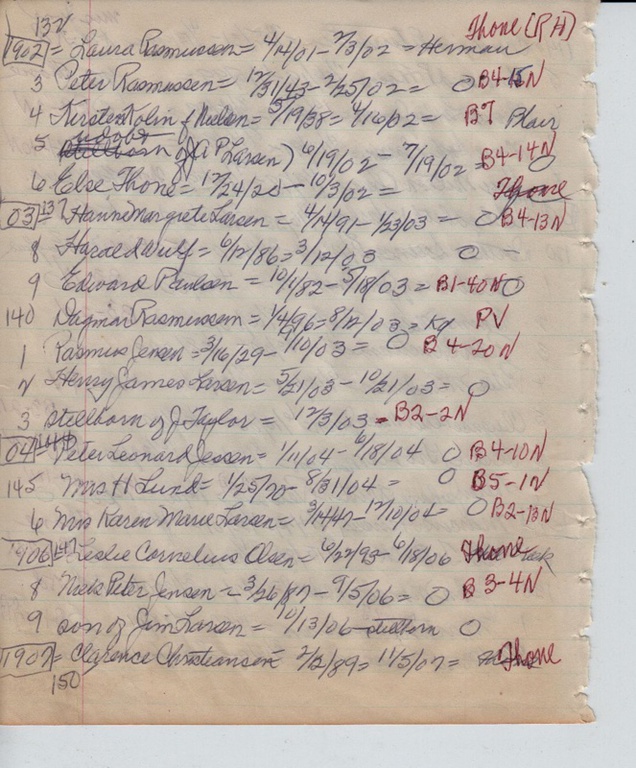 132 Thone (PH)
1902 = Laura Rasmussen = 4/14/01 - 2/3/02 = Herman
3 Peter Rasmussen = 12/31/43 - 2/25/02 = O B4-15N
4 Kersten Kolin f Nielsen = 5/19/38 = 4/16/02 = B7 Blair
5 stillborn of (A P Larsen) 6/19/02 - 7/19/02 = B4-14N O
6 Else Thone = 12/24/20 - 10/3/02 = Thone
03 137 Hanne Margrete Larsen = 4/14/91 - 1/23/03 = O B4-13N
8 Harold Wulf = 6/12/86 = 3/12/03 O -
9 Edward Paulsen = 10/1/82 - 5/18/03 = B1-40N O
140 Dagmar Rasmussen = 1/4/96 = 8/12/03 = Kg PV
1 Rasmus Jensen = 3/16/29 - 1/10/03 = O B4-20N
2 Henry James Larsen = 5/21/03 - 10/21/03 = O
3 stillborn of J Taylor = 12/3/03 - B2-2N
04 144 Peter Leonard Jessen = 1/11/04 - 6/18/04 O B4-10N
145 Mrs H Lund = 1/25/70 - 8/31/04 = O B5-1N
6 Mrs Karen Marie Larsen = 3/14/47 - 12/10/04 = O B2-13N
1906 147 Leslie Cornelius Olsen = 6/22/93 - 6/18/06 Thone
8 Niels Peter Jensen = 3/26/87 - 9/5/06 = O B3-4N
9 son of Jim Larsen = 10/13/06 - stillborn O
1907 = Clarence Christiansen 2/2/89 = 11/5/07 = Thone
150